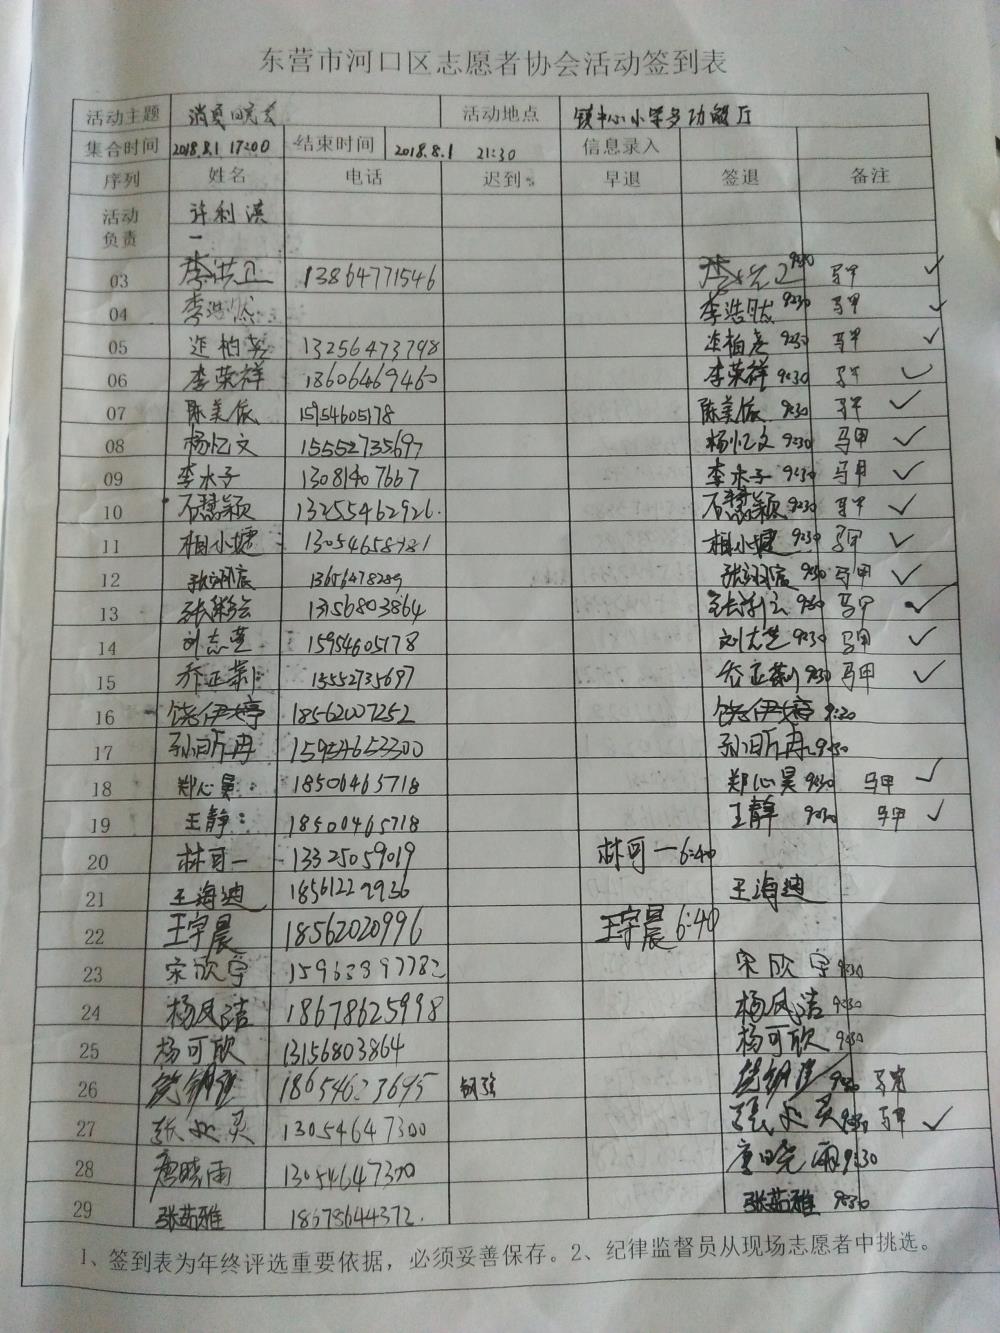 东营市河口区志愿者协会活动签到表
活动主题 消夏晚会 活动地点 镇中心小学多功能厅
集合时间 2018.8.1 17:00 结束时间 2018.8.1 21:30 信息录入
序列 姓名 电话 迟到 早退 签退 备注
活动 许利滨
负责
03 李洪卫 13864771546 9:30 马甲 ✓
04 李浩然 李浩然 9:30 马甲 ✓
05 13256473798 9:30 马甲 ✓
06 李荣祥 18606469460 李荣祥 9:30 马甲 ✓
07 陈美依 15954605178 陈美依 9:30 马甲 ✓
08 杨忆文 15552735697 杨忆文 9:30 马甲 ✓
09 李水子 13081407667 李水子 9:30 马甲 ✓
10 石慧颖 13255462926 石慧颖 9:30 马甲 ✓
11 相小婕 相小婕 9:30 马甲 ✓
12 9:30 马甲 ✓
13 13156803864 9:30 马甲 ✓
14 刘志芝 15954605178 刘志芝 9:30 马甲 ✓
15 乔正 乔正 9:30 马甲 ✓
16 饶伊婷 18562007252 饶伊婷 9:30
17 孙昕冉 15954653300 孙昕冉 9:30
18 郑心昊 18500465718 郑心昊 9:30 马甲 ✓
19 王静 18500465718 王静 9:30 马甲 ✓
20 林可一 13325059019 林可一 6:40
21 王海迪 18561229936 王海迪
22 王宇晨 18562020996 王宇晨 6:40
23 宋欣宇 宋欣宇 9:30
24 杨凤洁 18678625998 杨凤洁 9:30
25 杨可欣 13156803864 杨可欣 9:30
26 18654623695 9:30
27 13054647300 9:30 马甲 ✓
28 唐晓雨 13054647300 唐晓雨 9:30
29 张茹雅 18678644372 张茹雅 9:30
1、签到表为年终评选重要依据，必须妥善保存。2、纪律监督员从现场志愿者中挑选。